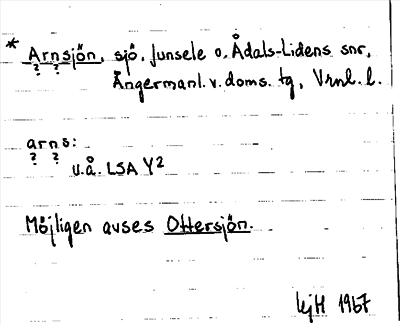 * Arnsjön, sjö, Junsele o. Ådals-Lidens snr,
? ?
Ångermanl. v. doms. tg, Vrnl. l.
arns:
? ?
u.å. LSA Y2
Möjligen avses Ottersjön.
LyH 1967